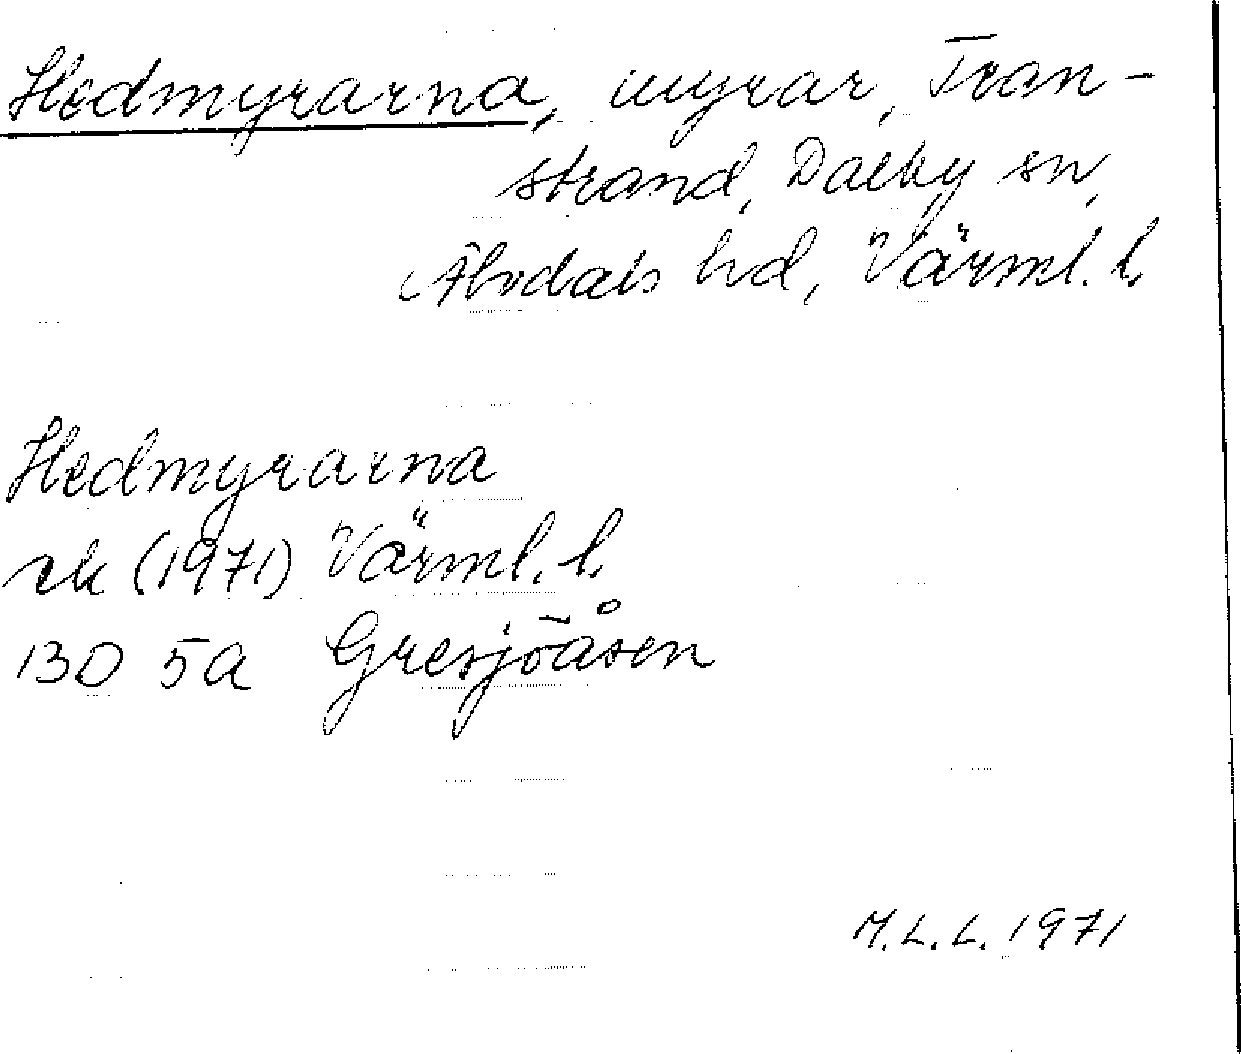 Hedmyrarna, myrar, Tran-
strand, Dalby sn,
Älvdals hd, Värml. l.
Hedmyrarna
rk (1971) Värml. l.
13D 5a Gresjöåsen
M.L.L. 1971